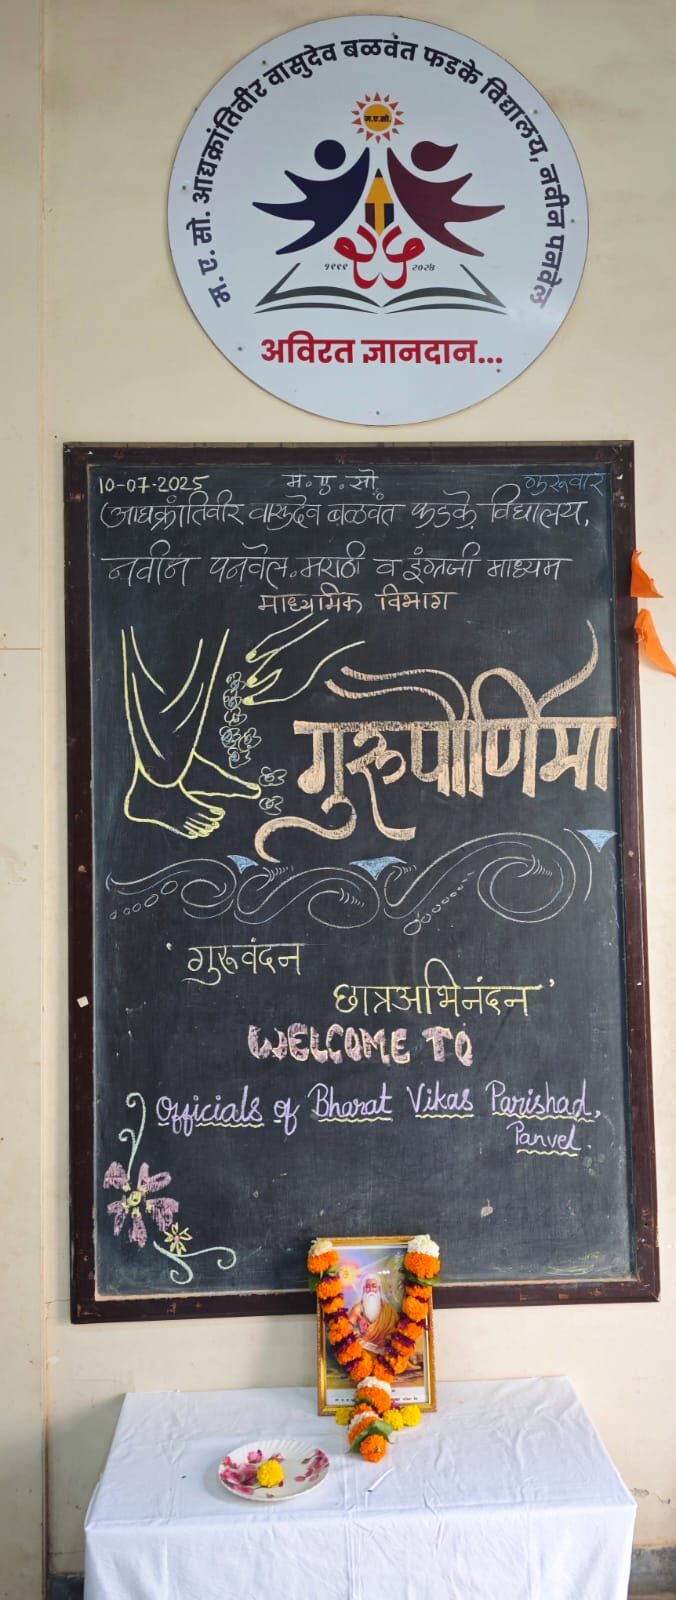 म. ए. सो. आद्यक्रांतिवीर वासुदेव बळवंत फडके विद्यालय, नवीन पनवेल
म.ए.सो.
१९९९ २०२४
अविरत ज्ञानदान...
10-07-2025 म. ए. सो. गुरूवार
आद्यक्रांतिवीर वासुदेव बळवंत फडके विद्यालय,
नवीन पनवेल. मराठी व इंग्रजी माध्यम
माध्यमिक विभाग
गुरूपौर्णिमा
' गुरूवंदन
छात्रअभिनंदन '
WELCOME TO
Officials of Bharat Vikas Parishad,
Panvel.